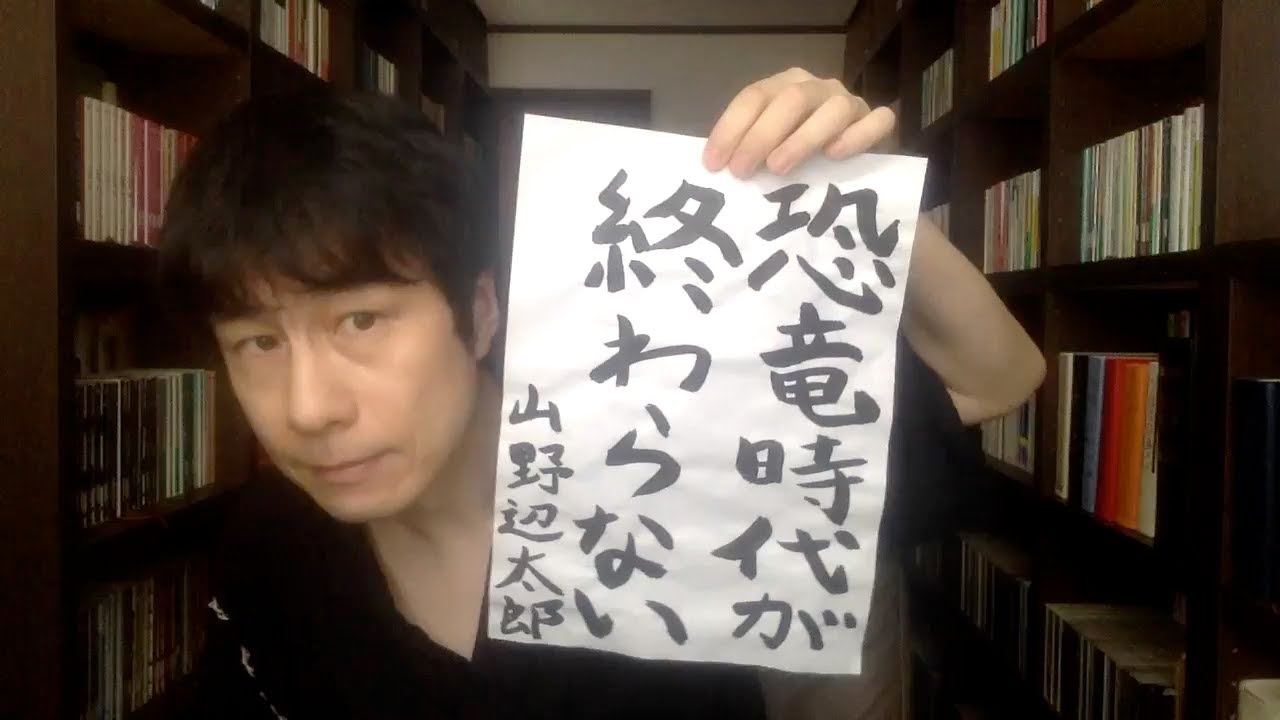 恐竜時代が
終わらない
山野辺太郎